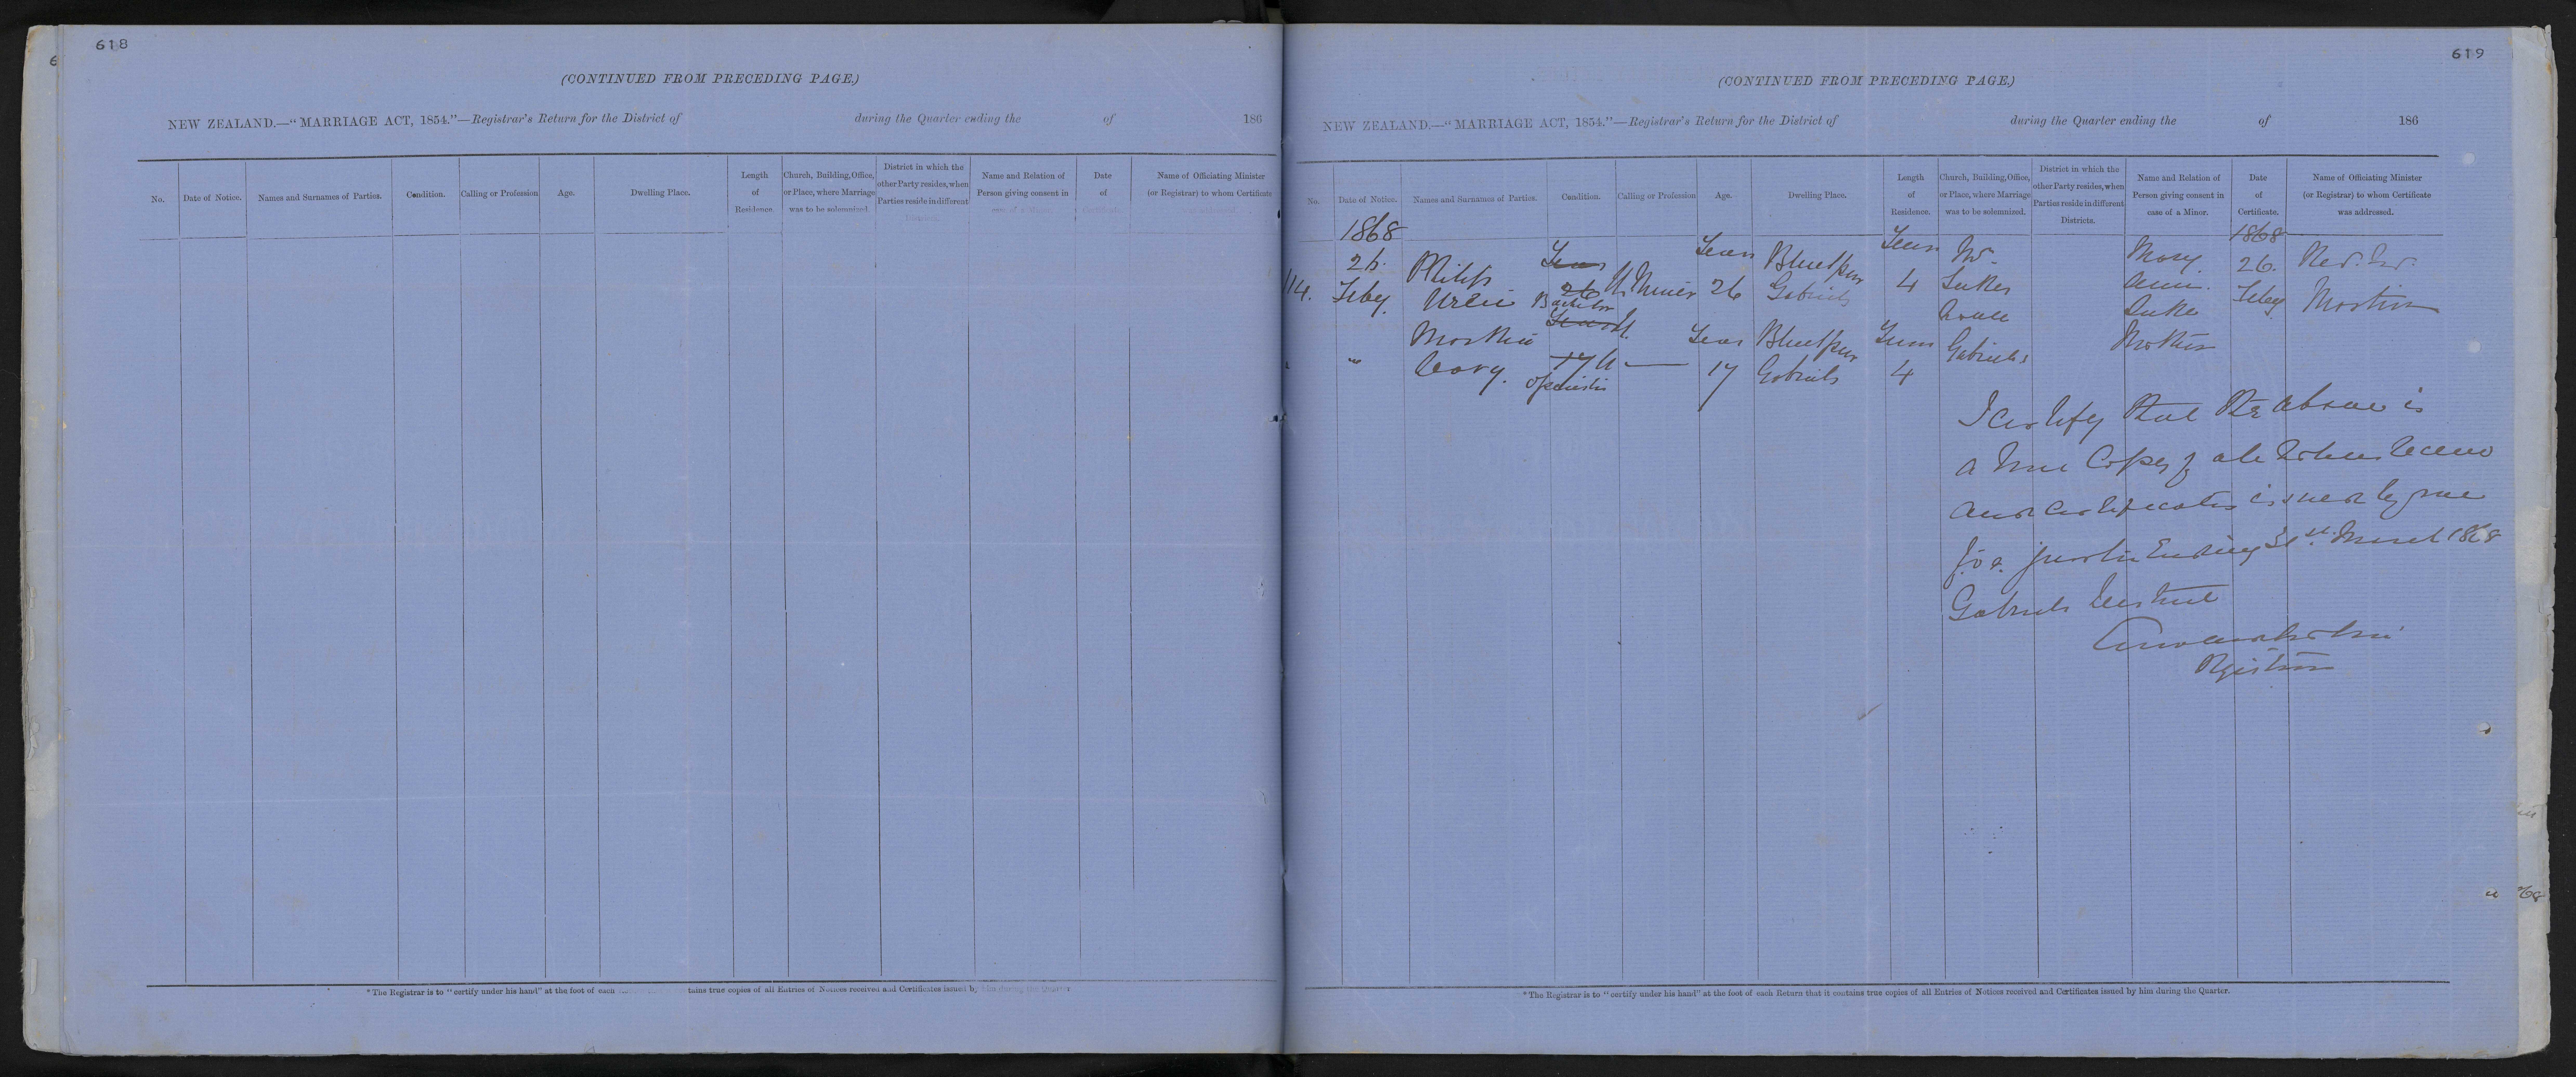 618
(CONTINUED FROM PRECEDING PAGE.)
NEW ZEALAND.—“MARRIAGE ACT, 1854.”—Registrar's Return for the District of during the Quarter ending the of 186
No.
Date of Notice.
Names and Surnames of Parties.
Condition.
Calling or Profession
Age.
Dwelling Place.
Length
of
Residence.
Church, Building, Office,
or Place, where Marriage
was to be solemnized.
District in which the
other Party resides, when
Parties reside in different
Districts.
Name and Relation of
Person giving consent in
case of a Minor.
Date
of
Certificate.
Name of Officiating Minister
(or Registrar) to whom Certificate
*The Registrar is to “certify under his hand” at the foot of each tains true copies of all Entries of Notices received and Certificates issued by him during the Quarter
619
(CONTINUED FROM PRECEDING PAGE.)
NEW ZEALAND.—“MARRIAGE ACT, 1854.”—Registrar's Return for the District of during the Quarter ending the of 186
No.
Date of Notice.
Names and Surnames of Parties.
Condition.
Calling or Profession
Age.
Dwelling Place.
Length
of
Residence.
Church, Building, Office,
or Place, where Marriage
was to be solemnized.
District in which the
other Party resides, when
Parties reside in different
Districts.
Name and Relation of
Person giving consent in
case of a Minor.
Date
of
Certificate.
Name of Officiating Minister
(or Registrar) to whom Certificate
was addressed.
1868
114.
26.
Feby.
Philip
Years
26
Bachelor
Miner
Years
26
Bluespur
Gabriels
Years
4
Mr.
Lukes
House
Gabriels
Mary
Ann
Luke
Mother
1868
26.
Feby
Rev. Mr.
Martin
"
Martha
Cory.
Years
17
Spinster
—
Years
17
Bluespur
Gabriels
Years
4
I Certify that the above is
a True Copy of all Notices
and Certificates issued by me
for quarter Ending 31st. March 1868
Gabriels District
Registrar
*The Registrar is to “certify under his hand” at the foot of each Return that it contains true copies of all Entries of Notices received and Certificates issued by him during the Quarter.
68